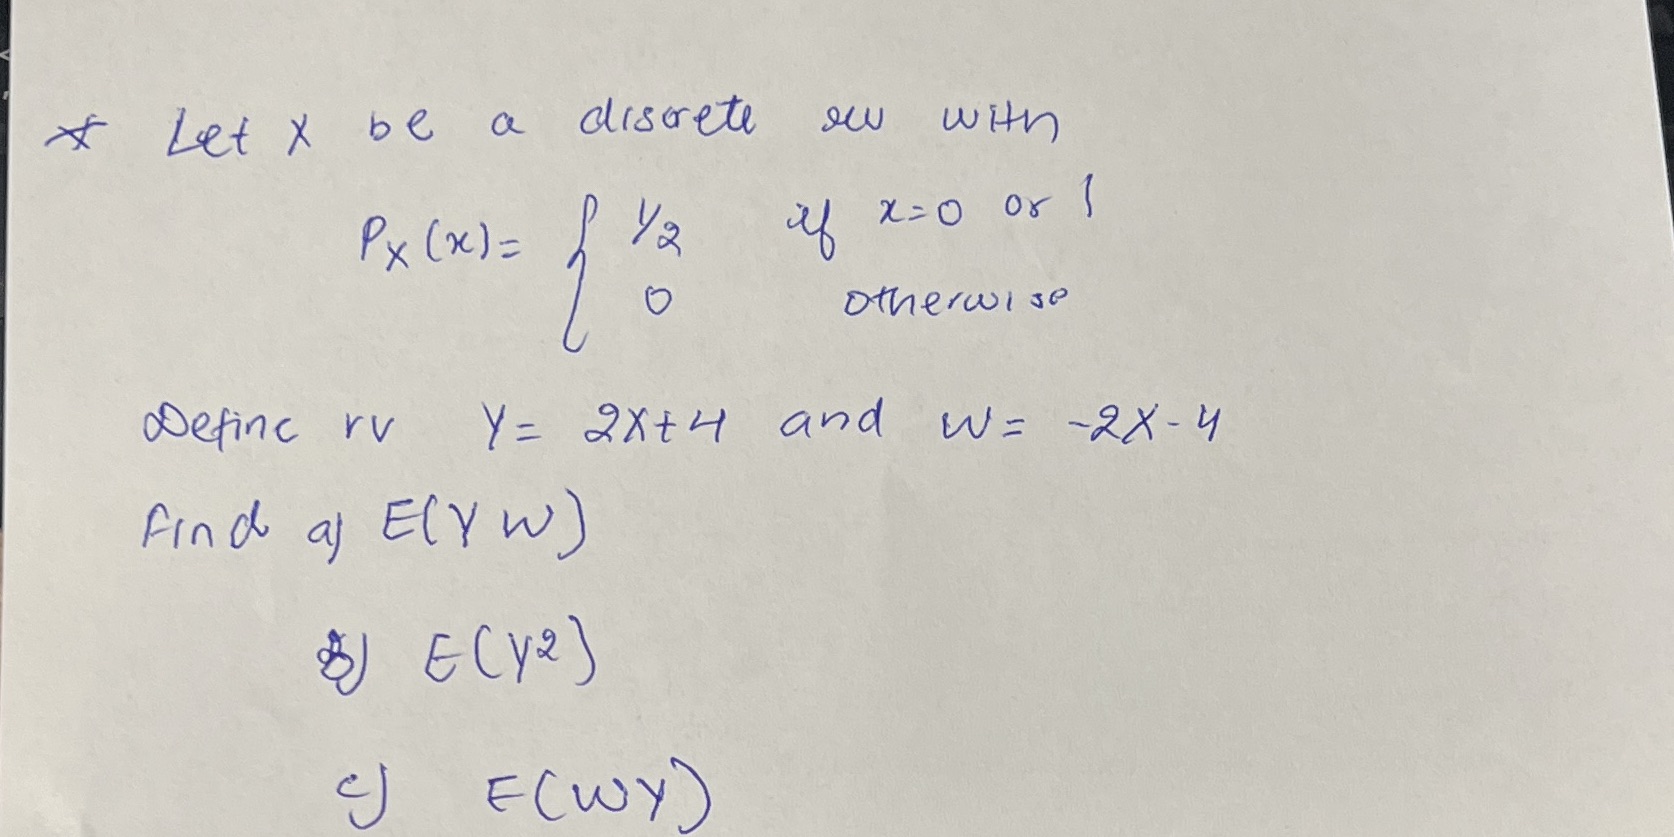 * Let X be a discrete rv with
P_X(x) = { 1/2 if x=0 or 1
0 otherwise
Define rv Y = 2X+4 and W = -2X-4
Find a) E(YW)
b) E(Y²)
c) E(WY)